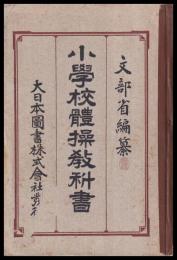 文部省編纂
小學校體操教科書
大日本圖書株式會社